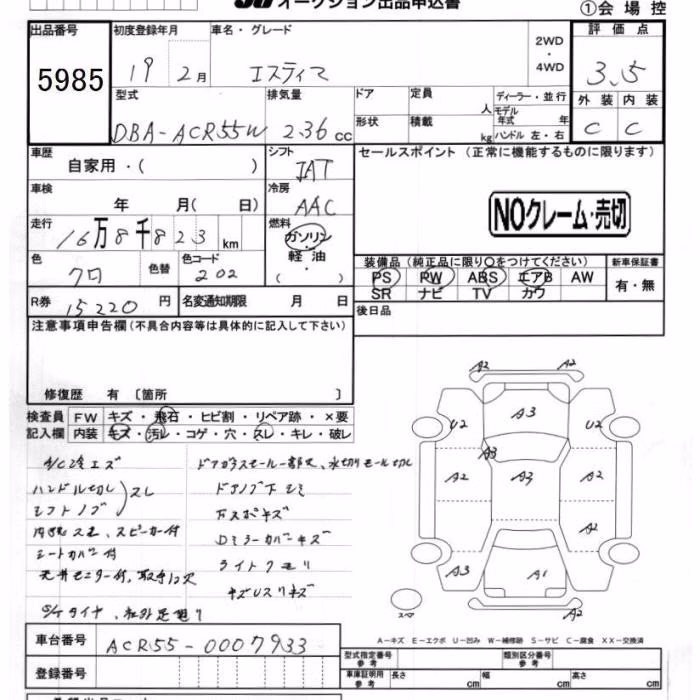 オークション出品申込書
①会場控
出品番号
5985
初度登録年月
19 2月
車名・グレード
エスティマ
2WD
・
4WD
評価点
3.5
外装 内装
C C
型式
DBA-ACR55W
排気量
2.36 cc
ドア
形状
定員 人
積載 kg
ディーラー・並行
モデル年式 年
ハンドル 左・右
車歴
自家用・( )
シフト
IAT
セールスポイント (正常に機能するものに限ります)
NOクレーム・売切
車検
年 月( 日)
冷房
AAC
走行
16万8千823 km
燃料
ガソリン
軽油
( )
色
クロ
色替
色コード
202
装備品 (純正品に限り〇をつけてください)
PS PW ABS エアB AW
SR ナビ TV カワ
新車保証書
有・無
R券 15220 円
名変通知期限 月 日
後日品
注意事項申告欄(不具合内容等は具体的に記入して下さい)
修復歴 有 〔箇所 〕
検査員記入欄
FW キズ・飛石・ヒビ割・リペア跡・×要
内装 キズ・汚レ・コゲ・穴・スレ・キレ・破レ
ハンドル
スレ
シフトノブ
スピーカー付
シートカバー付
天井モニター付
S/Tタイヤ
Dミラーカバーキズ
ライトクモリ
A2 A2
U2 A3 U2
A3
A2 A3 A2
A2
A3 A1
A2
スペア
A-キズ E-エクボ U-凹み W-補修跡 S-サビ C-腐食 XX-交換済
車台番号 ACR55-0007933
登録番号
型式指定番号 参考
類別区分番号 参考
車庫証明用 参考 長さ cm 幅 cm 高さ cm